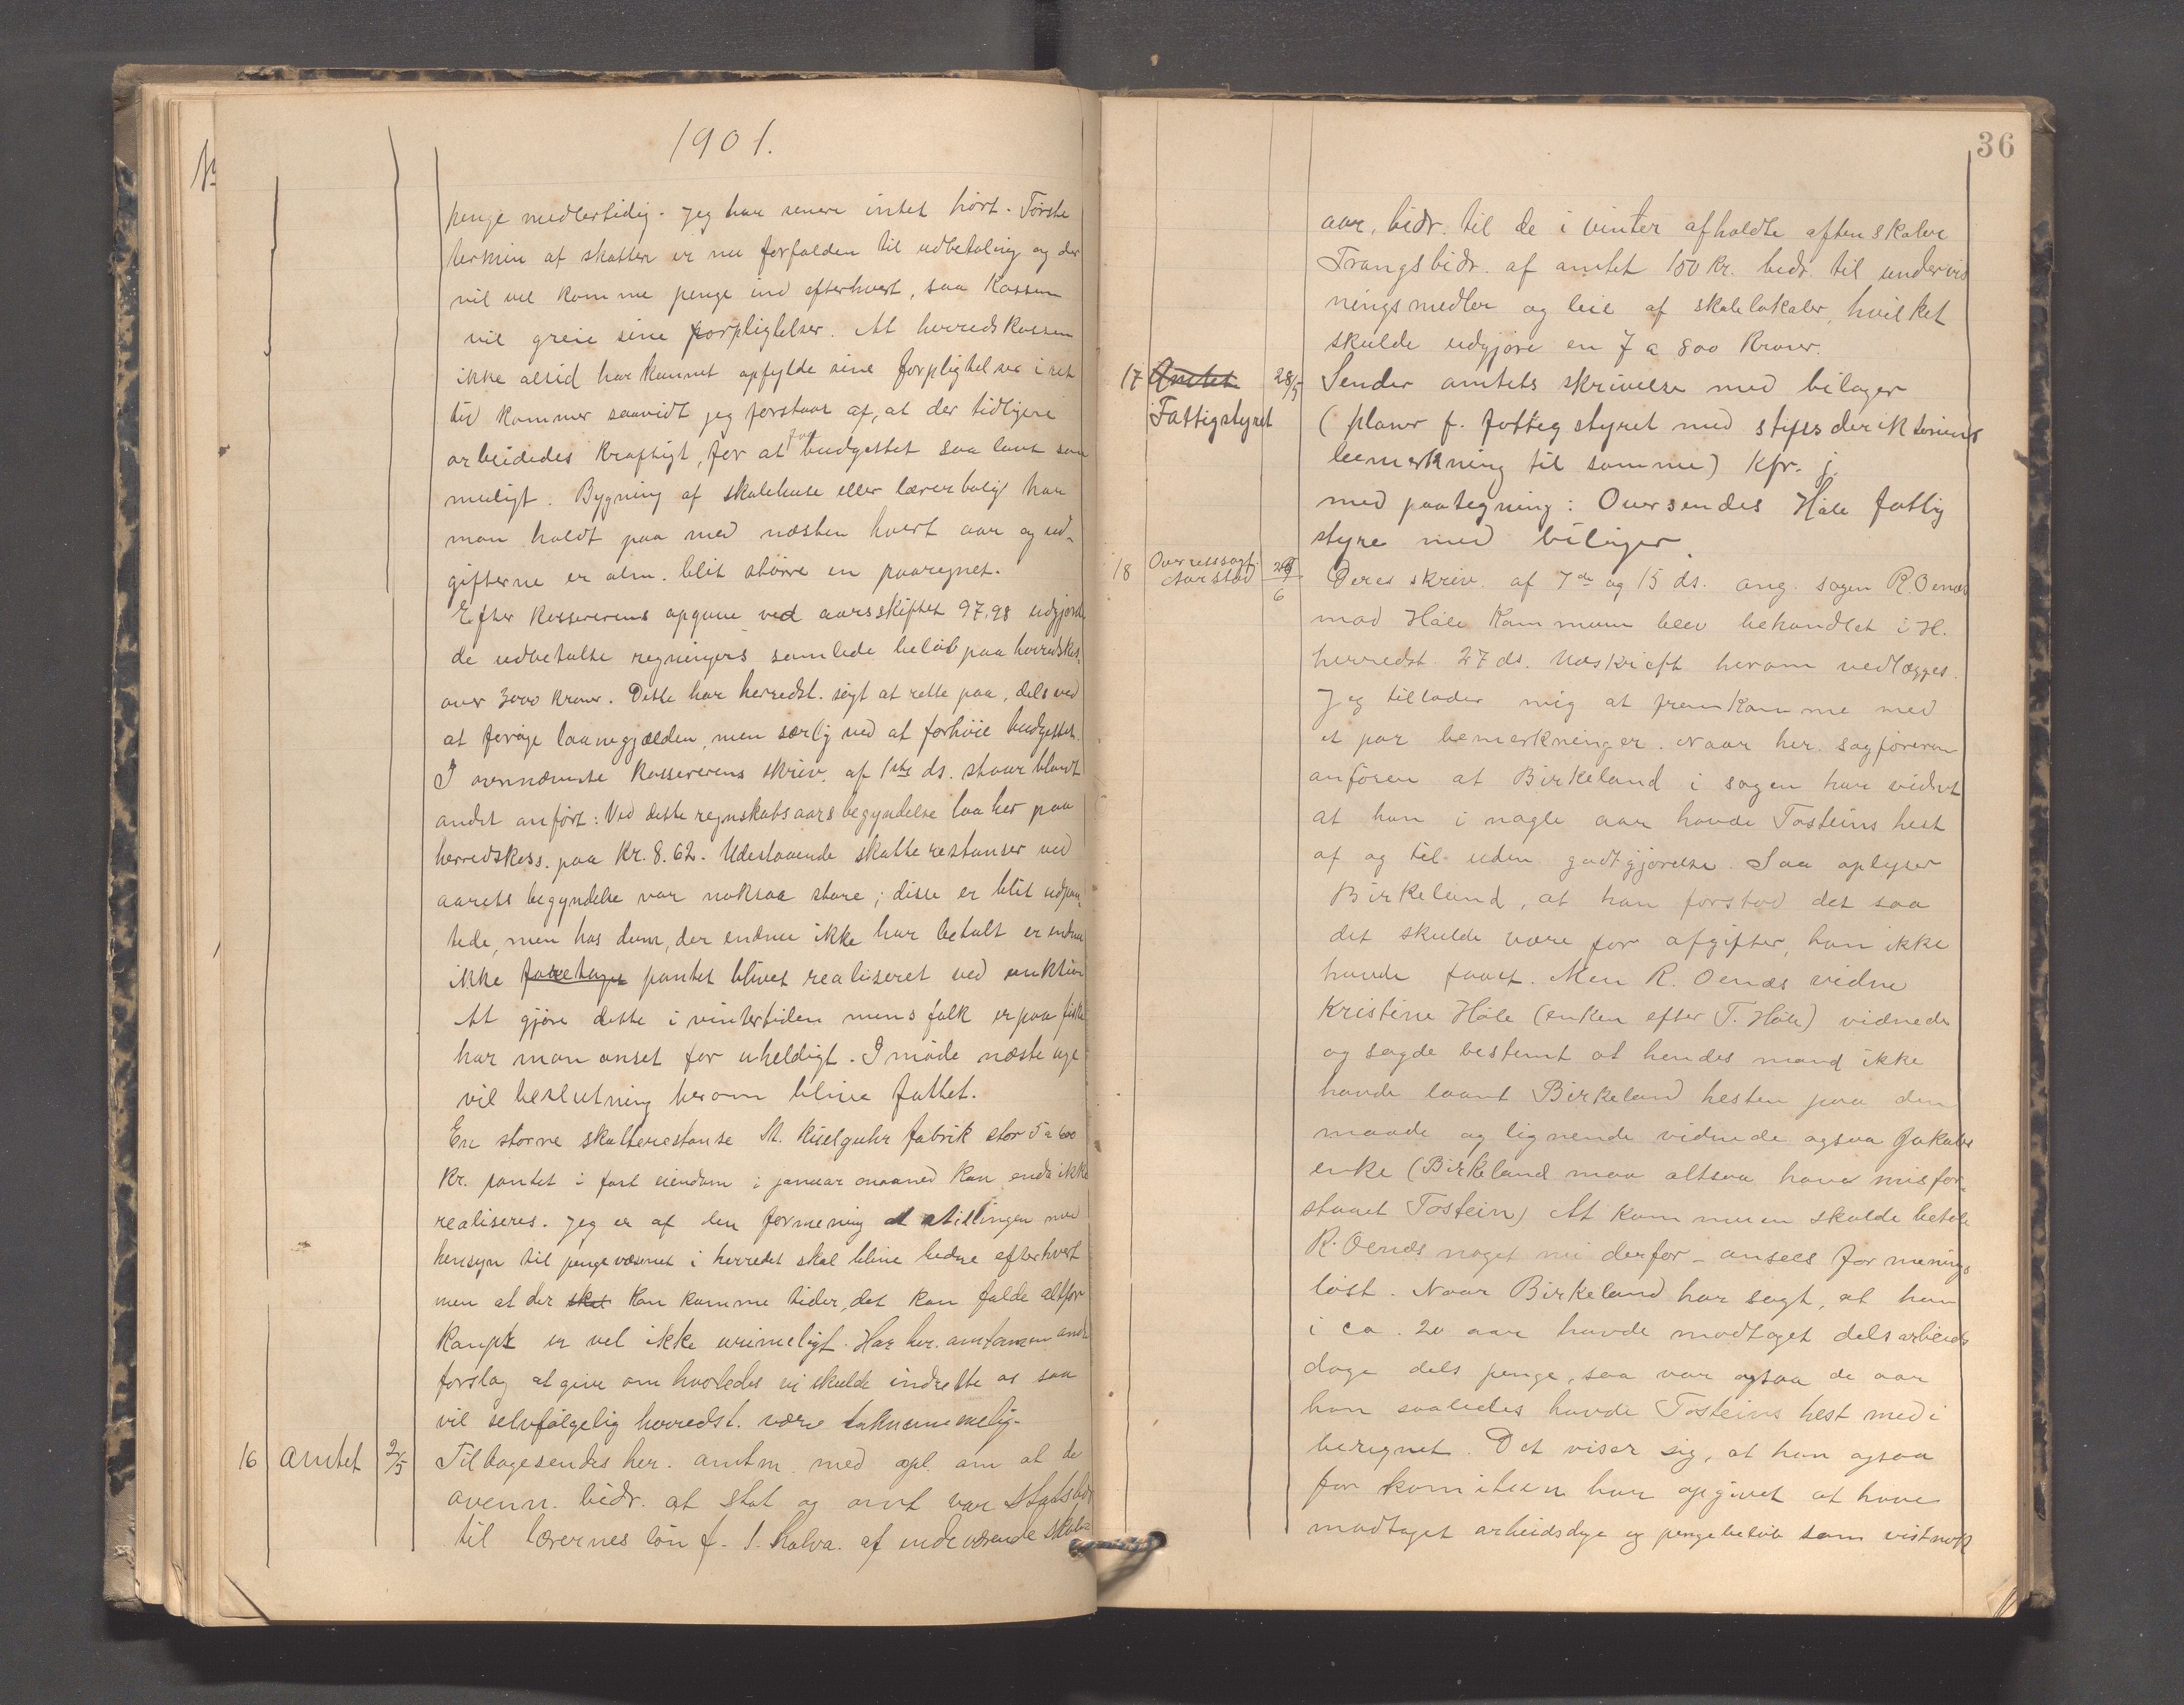 1901.
penge medlertidig. Jeg har senere intet hørt. Første
termin af skatten er nu forfalden til udbetaling og der
vil vel komme penge ind efterhvert, saa Kassen
vil greie sine forpligtelser. At herredskassen
ikke altid har kunnet opfylde sine forpligtelser i ret
tid kommer saavidt jeg forstaar af, at der tidligere
arbeidedes kraftigt, for at faa budgettet saa lavt som
muligt. Bygning af skolehuse eller lærerbolig har
man holdt paa med næsten hvert aar og ud-
gifterne er alm. blit større en paaregnet.
Efter kassererens opgave ved aarsskiftet 97.98 udgjorde
de udbetalte regningers samlede beløb paa herredskas.
over 3000 kroner. Dette har herredst. søgt at rette paa, dels ved
at forøge laanegjælden, men særlig ved at forhøie budgettet.
I ovennævnte kassererens skriv. af 1ste ds. staar blandt
andet anført: Ved dette regnskabsaars begyndelse laa her paa
herredskass. paa Kr. 8.62. Udestaaende skatterestanser ved
aarets begyndelse var noksaa store; disse er blit udpan-
tede, men hos dem, der endnu ikke har betalt er endnu
ikke foretaget pantet blivet realiseret ved auktion
At gjøre dette i vintertiden mens folk er paa fiske
har man anset for uheldigt. I møde næste uge
vil beslutning herom blive fattet.
En større skatterestanse St. kiselguhr fabrik stor 5 a 600
Kr. pantet i fast eiendom i januar maaned kan enda ikke
realiseres. Jeg er af den formening at stillingen med
hensyn til pengevæsenet i herredet skal blive bedre efterhvert
men at der skal kan komme tider, det kan falde altfor
knapt er vel ikke urimeligt. Har her. amtmanden andre
forslag at give om hvorledes vi skulde indrette os saa
vil selvfølgelig herredst. være taknemmelig.
16 Amtet 2/5 Tilbagesendes her. amtm. med opl. om at de
ovenn. bidr. at stat og amt var Statsbidr
til lærernes løn f. 1. halva. af indeværende skole
36
aar, bidr. til de i vinter afholdte aftenskoler
Trangsbidr. af amtet 150 Kr. bidr. til undervis
ningsmidler og leie af skolelokaler, hvilket
skulde udgjøre en 7 a 800 Kroner.
17 Amtet 28/5 Sender amtets skrivelse med bilager
Fattigstyret (planer f. fattigstyret med stiftsdirektionens
bemerkning til samme) Kfr. j.
med paategning: Oversendes Håle fattig
styre med bilager.
18 Overretssagf. Aarstad 29/6 Deres skriv. af 7de og 15 ds. ang. sagen R. Oenæs
mod Håle Kommune blev behandlet i H.
herredst. 27 ds. Udskrift herom vedlægges.
Jeg tillader mig at fremkomme med
et par bemerkninger. Naar her. sagføreren
anfører at Birkeland i sagen har vidnet
at han i nogle aar havde Tosteins hest
af og til uden godtgjørelse. Saa oplyser
Birkeland, at han forstod det saa
det skulde være for afgifter, han ikke
havde faaet. Men R. Oenæs vidne
Kristine Håle (enken efter T. Håle) vidnede
og sagde bestemt at hendes mand ikke
havde laant Birkeland hesten paa den
maade og lignende vidnede ogsaa Jakobs
enke (Birkeland maa altsaa have misfor-
staaet Tostein) At kommunen skulde betale
R. Oenæs noget nu derfor - ansees for menings
løst. Naar Birkeland har sagt, at han
i ca. 20 aar havde modtaget dels arbeids
dage dels penge, saa var ogsaa de aar
han saaledes havde Tosteins hest med i
beregnet. Det viser sig, at han ogsaa
for komiteen har opgivet at have
modtaget arbeidsdage og pengebeløb som vistnok